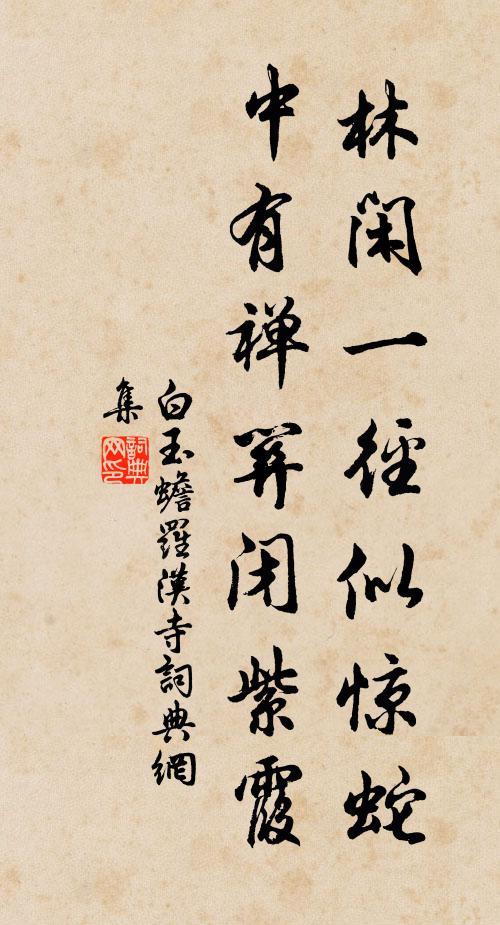 林闲一径似惊蛇
中有禅关闭紫霞
白玉蟾羅漢寺詞典網
集
詞典
网印